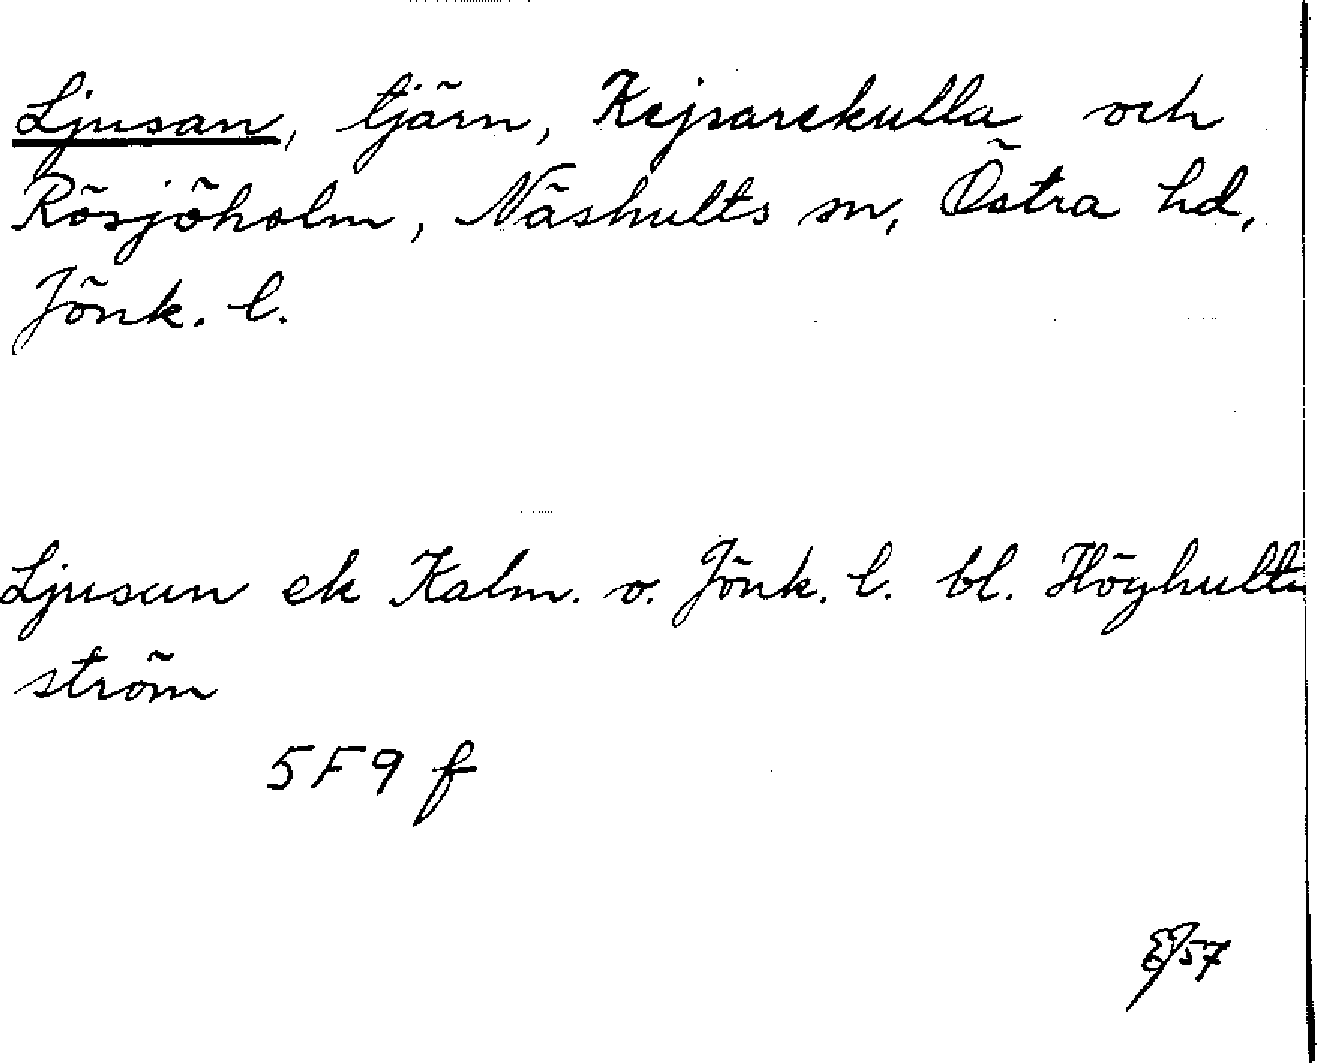 Ljusan, tjärn, Kejsarekulla och
Rösjöholm, Näshults sn, Östra hd,
Jönk. l.
Ljusan ek Kalm. o. Jönk. l. bl. Höghults
ström
5F9 f
57